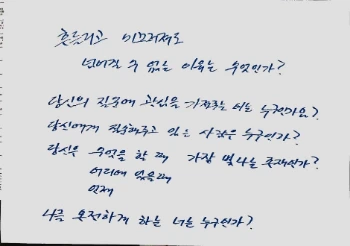 흔들리고 미끄러져도
넘어질 수 없는 이유는 무엇인가?
당신의 질문에 관심을 가져주는 너는 누구인가요?
당신에게 질문해주고 있는 사람은 누구인가?
당신은 무엇을 할 때 가장 빛나는 존재인가?
어디에 있을때
언제
나를 온전하게 하는 너는 누구인가?